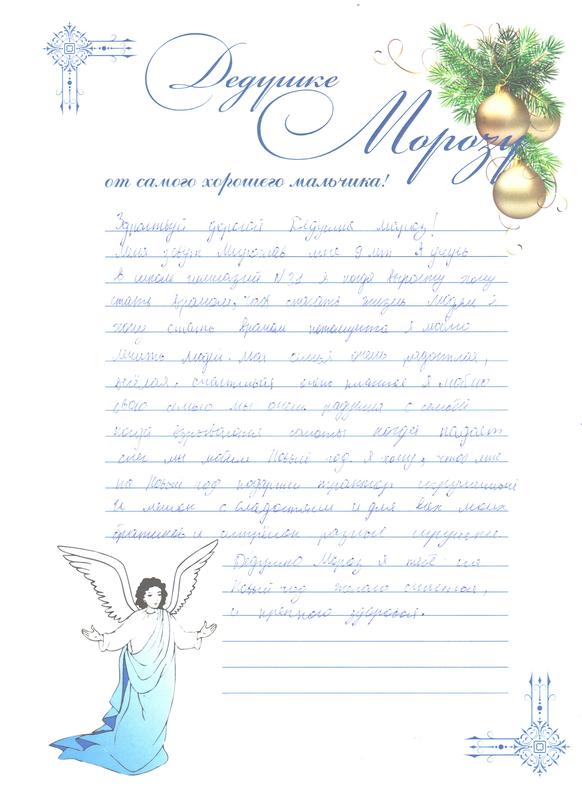 Дедушке
Морозу
от самого хорошего мальчика!
Здравствуй дорогой Дедушка мороз!
Меня зовут Мирослав мне 9 лет Я учусь
в школе гимназий №31 я когда вырасту хочу
стать врачом, чтоб спасать жизнь людям я
хочу стать врачом потомушто я люблю
лечить людей. Моя семья очень радостная,
весёлая, счастливая очень я люблю
свою семью мы очень радуемся с семьёй
когда взрываются салюты когда падает
снег мы любим Новый год. Я хочу, чтоб мне
на Новый год подарили трактор игрушечный
и мешок с сладостями и для всех моих
братиков и сестрёнок разные игрушки.
Дедушка Мороз я тебе на
Новый год желаю счастья,
и крепкого здоровья.